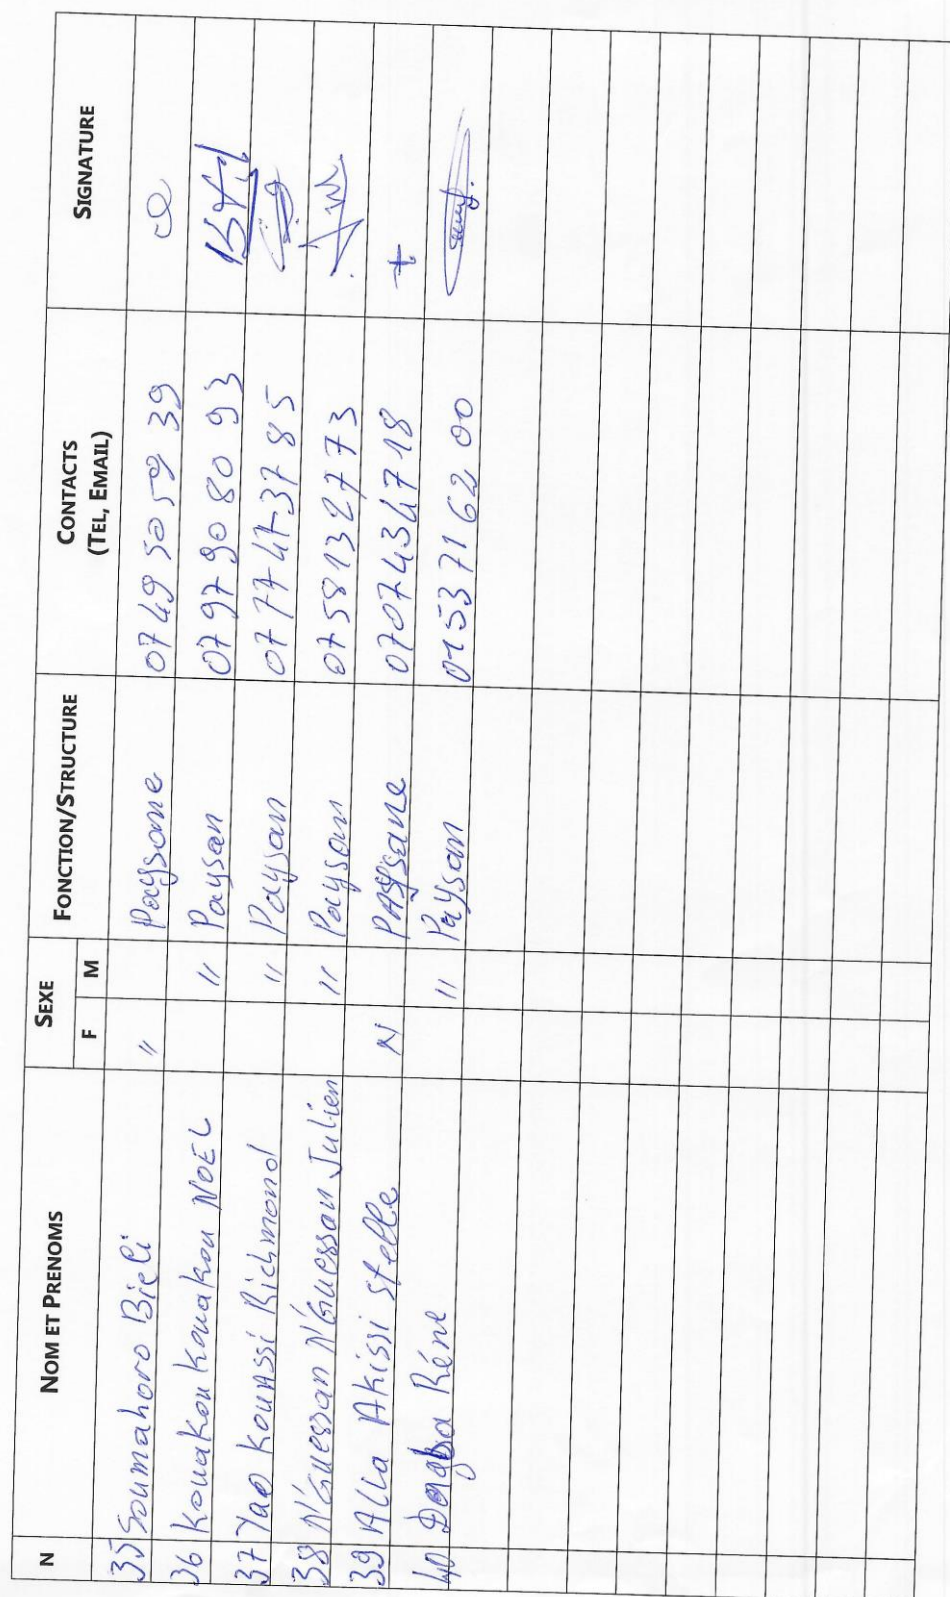 N NOM ET PRENOMS SEXE FONCTION/STRUCTURE CONTACTS (TEL, EMAIL) SIGNATURE
F M
35 Soumahoro Bieli " Paysane 07 49 50 59 39
36 Kouakou Kouakou NOEL " Paysan 07 97 90 80 93
37 Yao KouAssi Richmond " Paysan 07 77 47 37 85
38 N'Guessan N'Guessan Julien " Paysan 07 58 13 27 73
39 Alla Akissi Stelle N PAYSane 07 07 43 47 18
40 Réne " Paysan 01 53 71 62 00